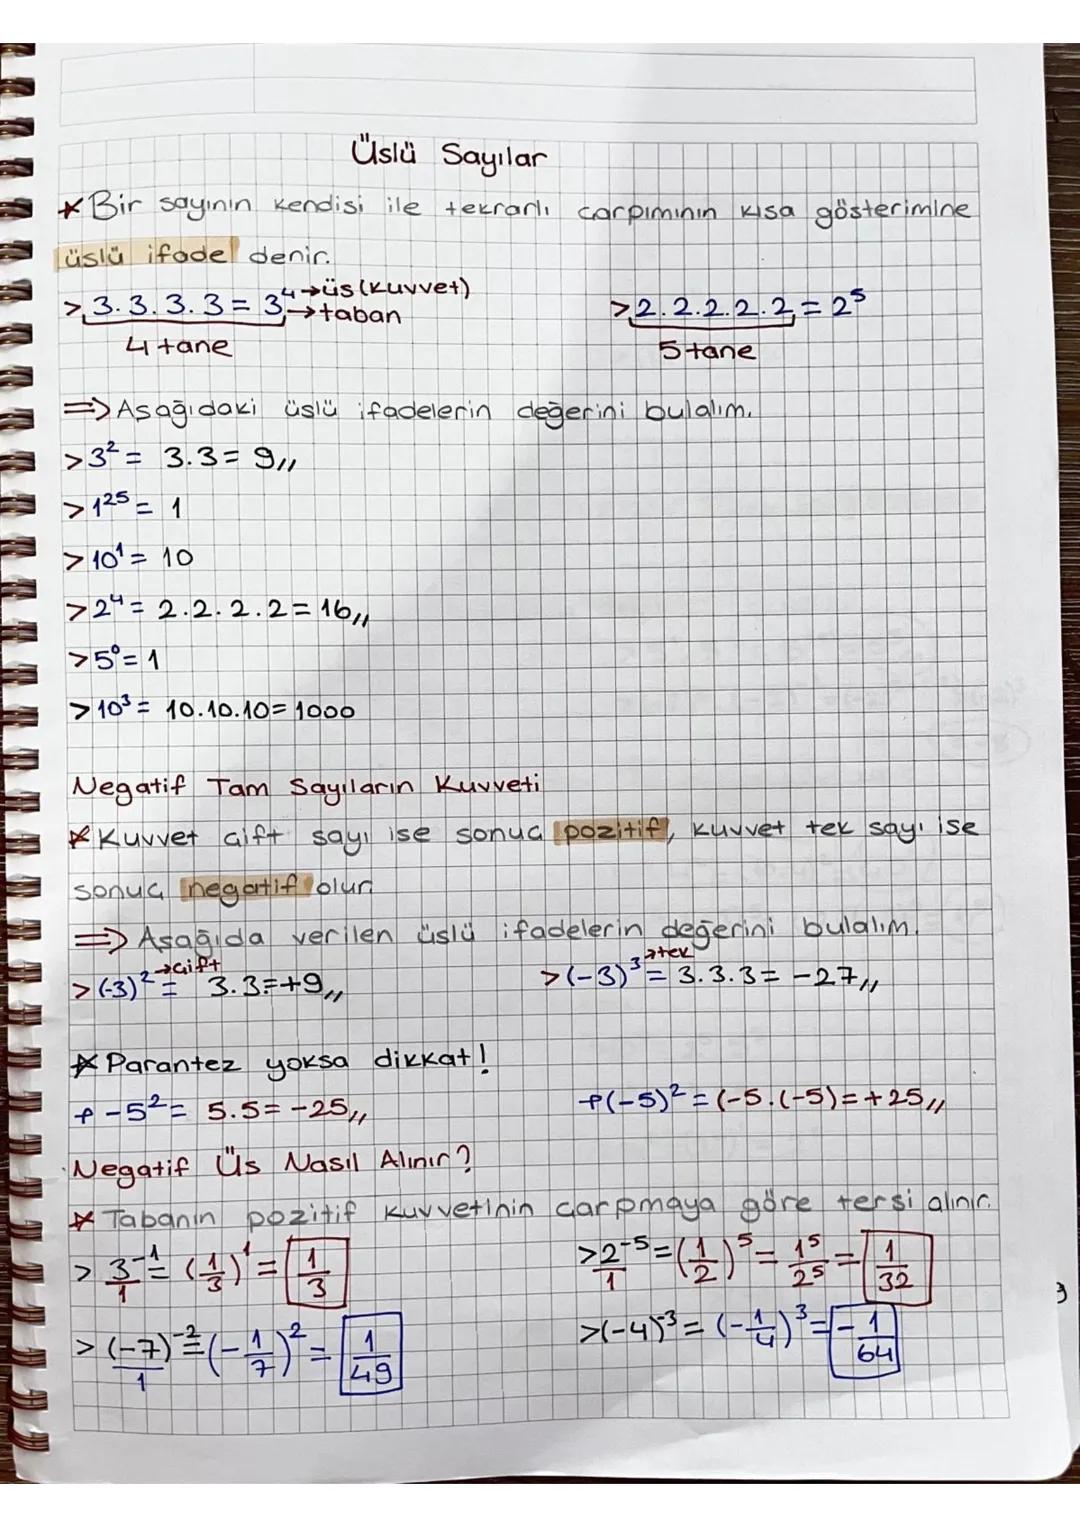 Üslü Sayılar
* Bir sayının kendisi ile tekrarlı çarpımının kısa gösterimine
üslü ifade denir.
> 3.3.3.3 = 3⁴ →üs (kuvvet) →taban > 2.2.2.2.2 = 2⁵
4 tane 5 tane
⇒ Aşağıdaki üslü ifadelerin değerini bulalım.
> 3² = 3.3 = 9,,
> 1²⁵ = 1
> 10¹ = 10
> 2⁴ = 2.2.2.2 = 16,,
> 5⁰ = 1
> 10³ = 10.10.10 = 1000
Negatif Tam Sayıların Kuvveti
* Kuvvet çift sayı ise sonuç pozitif, kuvvet tek sayı ise
sonuç negatif olur.
⇒ Aşağıda verilen üslü ifadelerin değerini bulalım.
> (-3)² →çift = 3.3 = +9,, > (-3)³ →tek = 3.3.3 = -27,,
* Parantez yoksa dikkat!
-5² = 5.5 = -25,, (-5)² = (-5.(-5) = +25,,
Negatif Üs Nasıl Alınır?
* Tabanın pozitif kuvvetinin çarpmaya göre tersi alınır.
> 3⁻¹/1 = (1/3)¹ = 1/3 > 2⁻⁵/1 = (1/2)⁵ = 1⁵/2⁵ = 1/32
> (-7)⁻²/1 = (-1/7)² = 1/49 > (-4)⁻³ = (-1/4)³ = -1/64